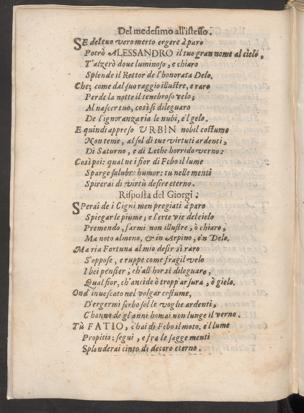 Del medesimo all'istesso.
SE del tuo vero merto ergere à paro
Potrò ALESSANDRO il tuo gran nome al cielo,
T'alzerò doue luminoso, e chiaro
Splende il Rettor de l'honorata Delo.
Che; come dal suo raggio illustre, e raro
Perde la notte il tenebroso velo;
Al nascer tuo, così si dileguaro
De l'ignoranza le nubi, e'l gelo.
E quindi appreso VRBIN nobil costume
Non teme, al sol di tue virtuti ardenti,
Di Saturno, e di Lethe horrido verno:
Così poi: qual nei fior di Febo il lume
Sparge salubr' humor: tu nelle menti
Spirerai di virtù desire eterno.
Risposta del Giorgi.
SPerai de i Cigni men pregiati à paro
Spiegar le piume, e l'erte vie del cielo
Premendo, farmi non illustre, ò chiaro,
Ma noto almeno, ò in Arpino, ò n Delo.
Ma ria Fortuna al mio desir sì raro
S'oppose, e ruppe come fragil velo
I bei pensier; ch'all'hor si dileguaro,
Qual fior, ch'ancide ò tropp'arsura, ò gielo.
Ond' inuescato nel volgar costume,
D'ergermi scerbo sol le voglie ardenti,
C'hanno de gl'anni homai non lunge il verno.
Tù FATIO, c'hai di Febo il moto, e'l lume
Propitio: segui, e fra le sagge menti
Splenderai cinto di decoro eterno.